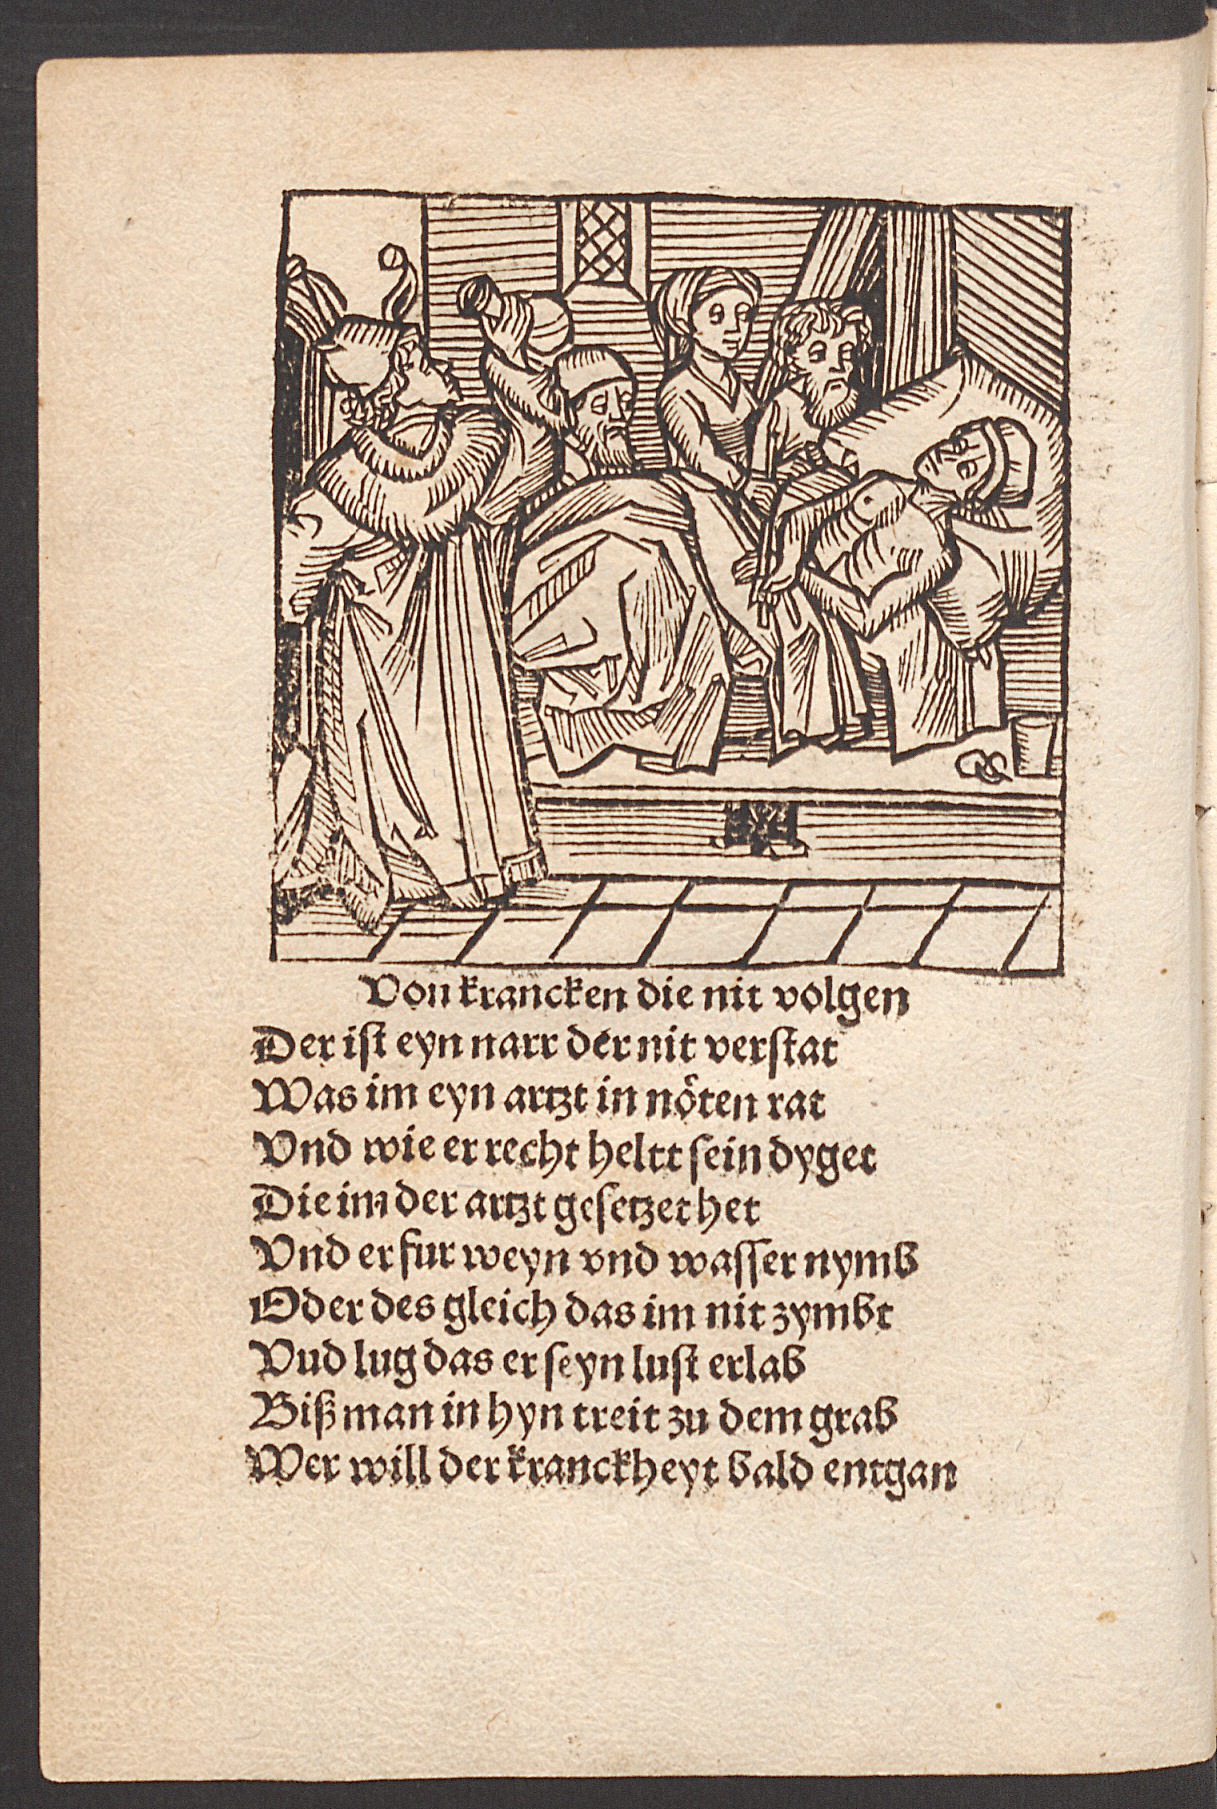 Von krancken die nit volgen
Der ist eyn narr der nit verstat
Was im eyn artzt in nöten rat
Vnd wie er recht heltt sein dyget
Die im der artzt gesetzet het
Vnd er fur weyn vnd wasser nymb
Oder des gleich das im nit zymbt
Vud lug das er seyn lust erlab
Biß man in hyn treit zu dem grab
Wer will der kranckheyt bald entgan